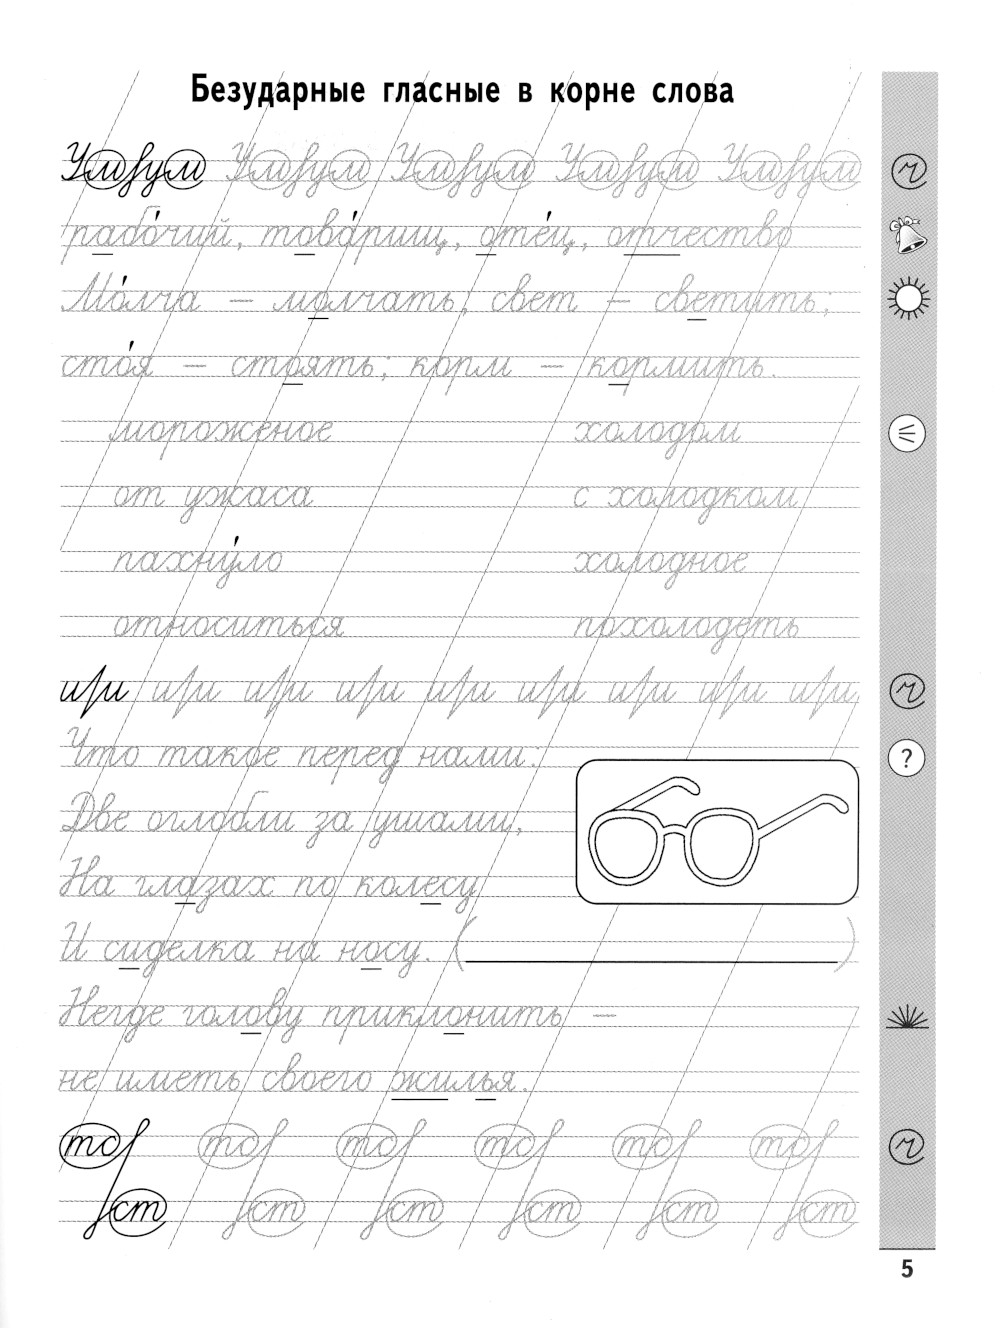 Безударные гласные в корне слова
рабо́чий, това́рищ, оте́ц, отчество
Мо́лча – молчать, свет – светить;
сто́я – стоять; корм – кормить.
мороженое холодом
от ужаса с холодком
пахну́ло холодное
относиться похолодеть
и/и и/и и/и и/и и/и и/и и/и и/и и/и
Что такое перед нами:
?
Две оглобли за ушами,
На глазах по колесу
И сиделка на носу. ( )
Негде голову приклонить –
не иметь своего жилья.
то то то то то то
ст ст ст ст ст ст
5